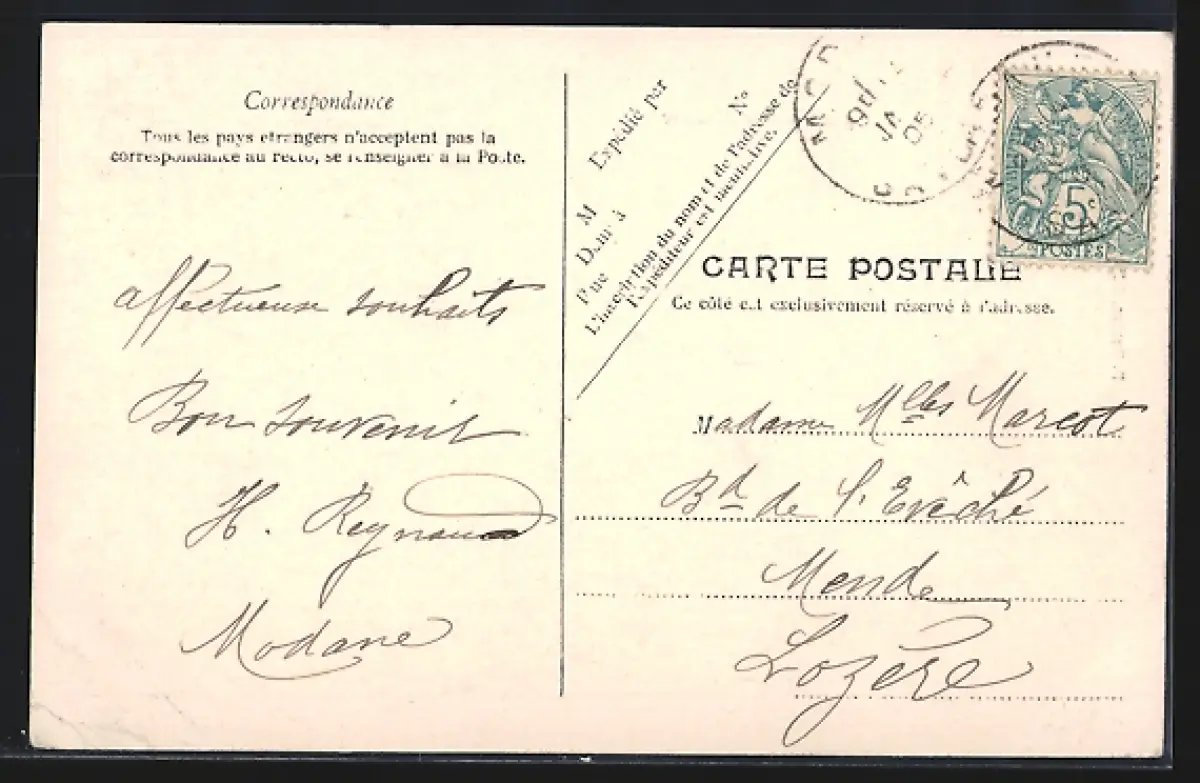 Correspondance
Tous les pays etrangers n'acceptent pas la
correspondance au recto, se renseigner à la Poste.
affectueux souhaits
Bon souvenir
H. Reynaud
Modane
Expédié par
M
Demt à
Rue
N°
L'inscription du nom et de l'adresse de
l'expéditeur est facultative.
5c
POSTES
CARTE POSTALE
Ce côté est exclusivement réservé à l'adresse.
Madame Mlles Marcot
Bd de l'Evêché
Mende
Lozère